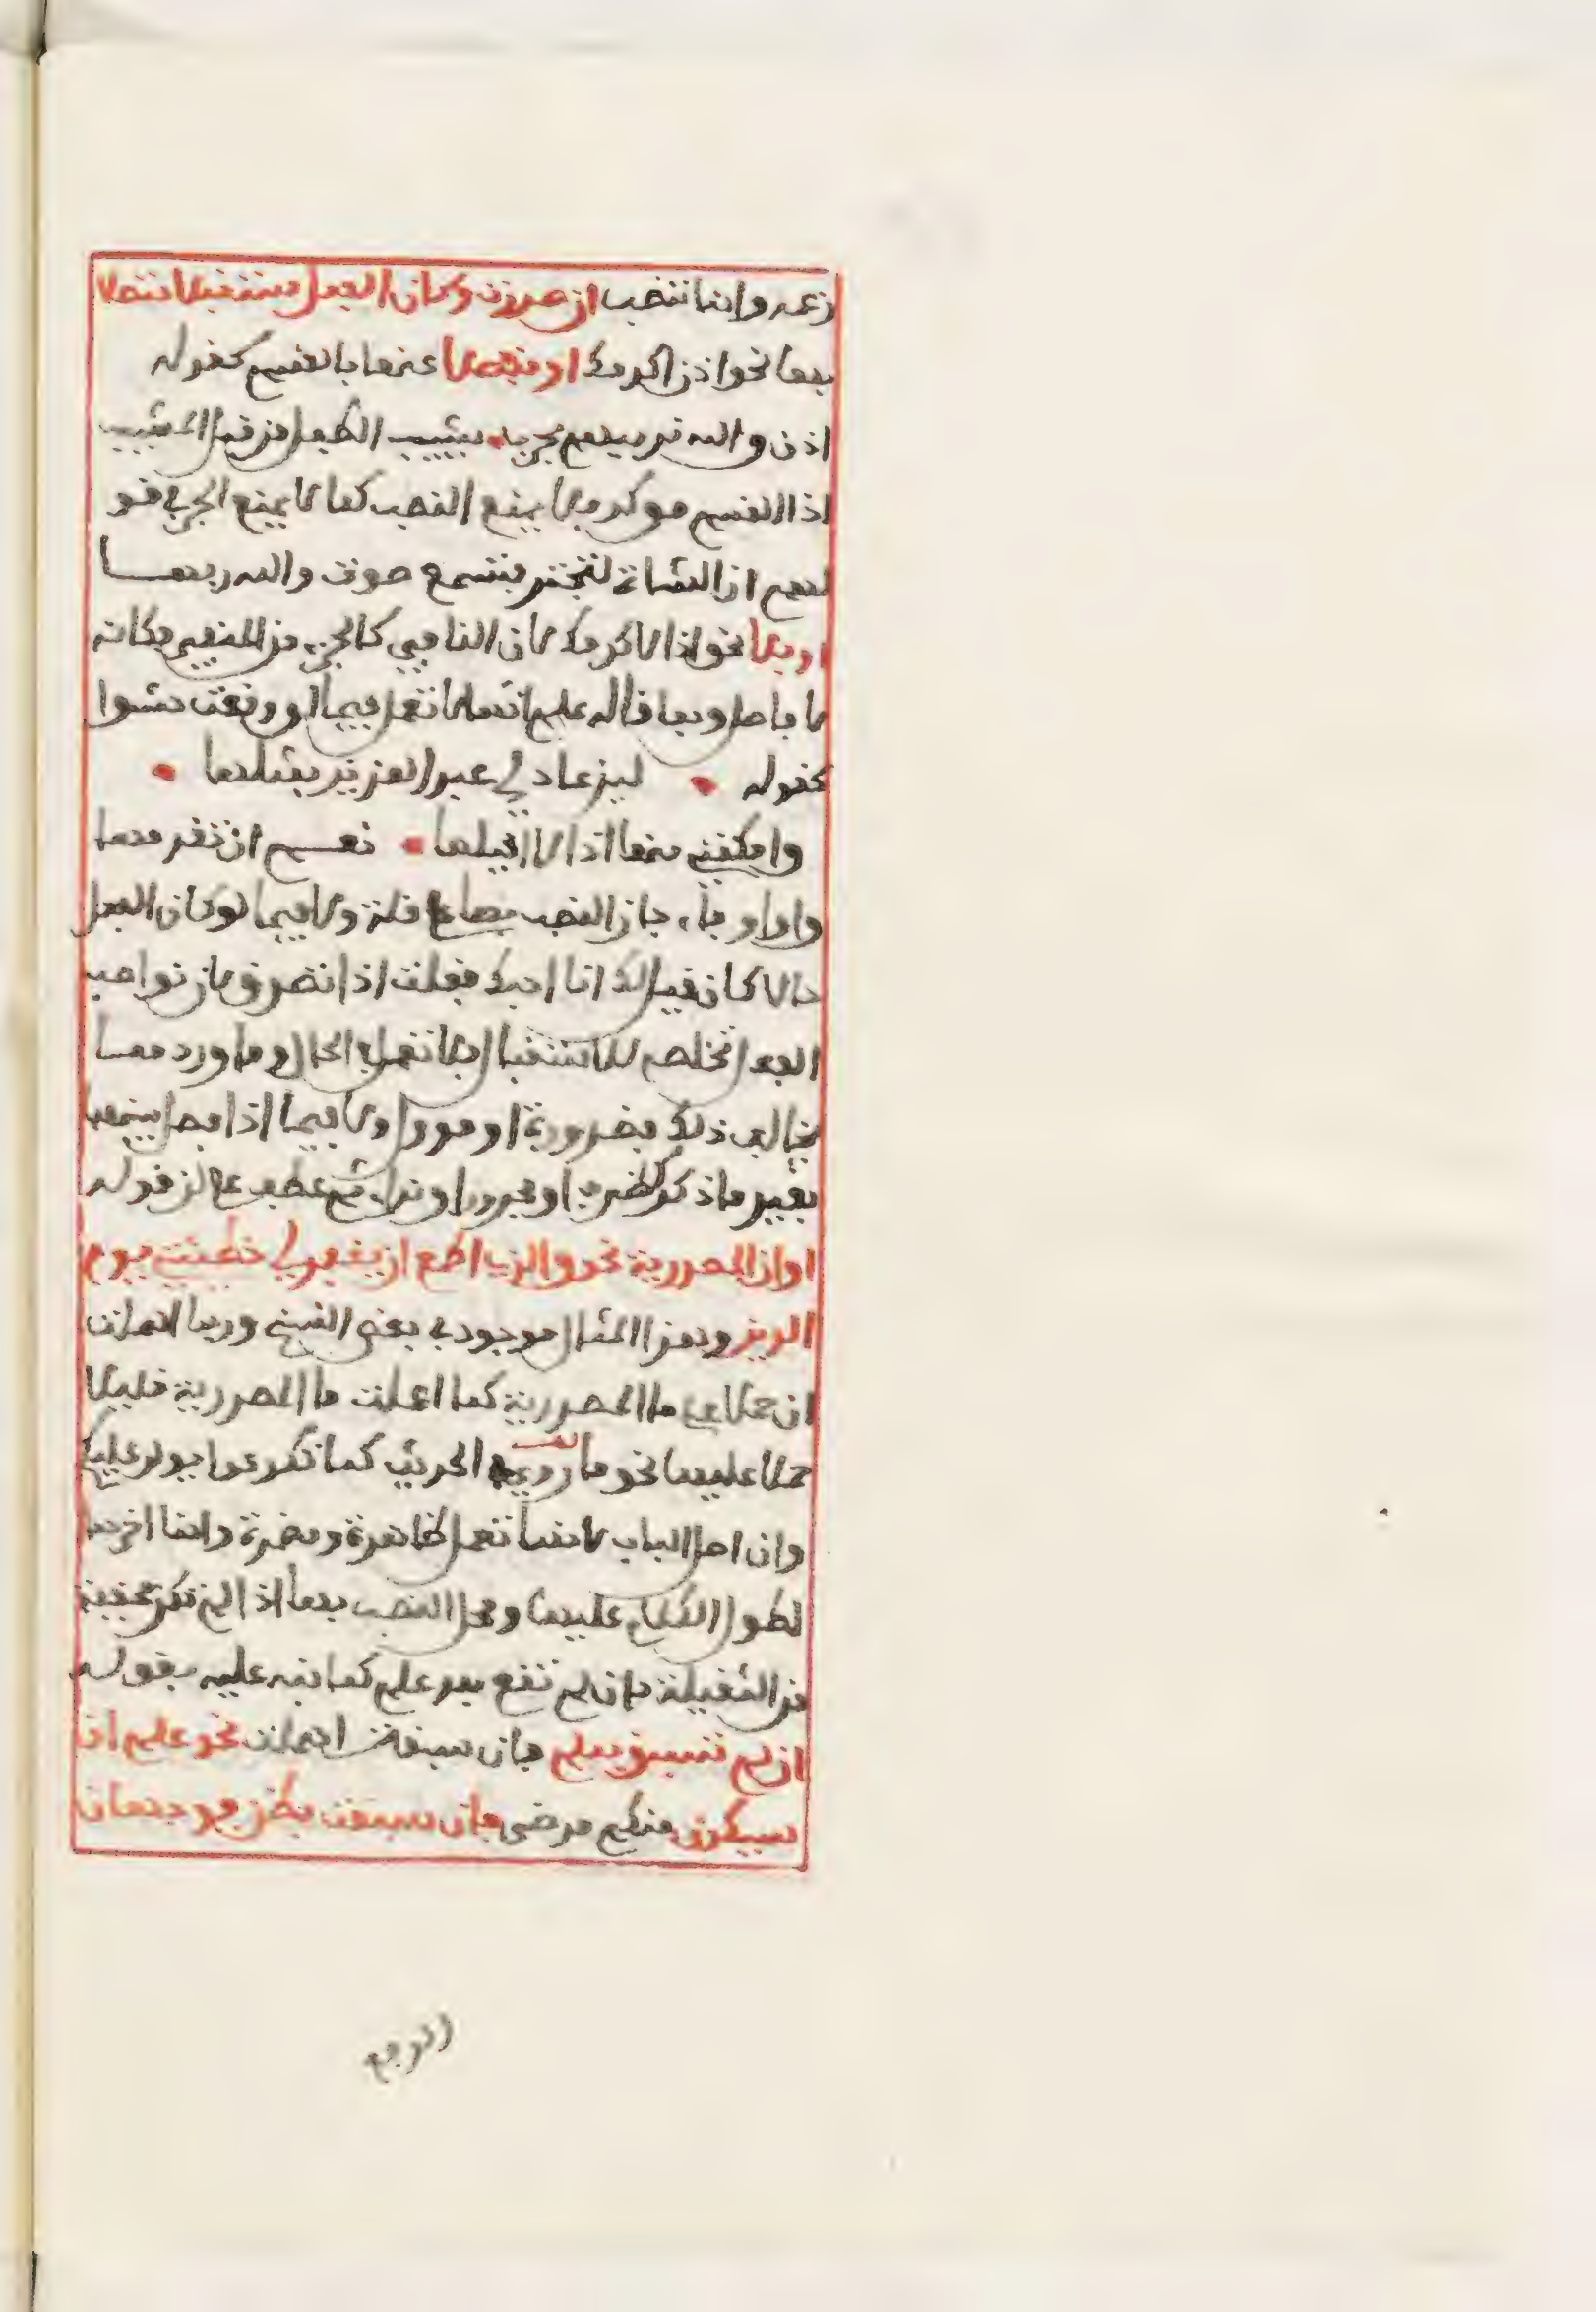 زعمه وانما تنصب ان صدرت وكان الفعل مستقبلا متصلا
بها نحو اذن اكرمك او منفصلا عنها بالقسم كقوله
اذن والله نرميهم بحرب • يشيب الطفل من قبل المشيب
اذ القسم موكد فلا يمنع النصب كما لا يمنع الجر في قو
لهم ان الشاة لتجتر فتسمع صوت والله ربها
او بلا نحو اذا لا اكرمك لان النافي كالجزء من المنفي فكانه
لا فاصل وبما قاله علم انها لا تعمل فيما لو وقعت حشوا
كقوله • لين عاد لي عبد العزيز بمثلها •
وامكنني منها اذا لا اقيلها • نعم ان تقدمها
واو او فاء جاز النصب بها على قلة ولا فيما لو كان الفعل
حالا كان قيل لك انا احبك فقلت اذا تصدق لان نواصب
الفعل تخلصه للاستقبال فلا تعمل في الحال وما ورد مما
يخالف ذلك فضرورة او موول ولا فيما اذا فصل بينهما
بغير ما ذكر كظرف او مجرور او نداء ثم عطف على لن قوله
او ان المصدرية نحو والذي اطمع ان يغفر لي خطيئتي يوم
الدين وهذا المثال موجود في بعض النسخ وربما اهملت
ان حملا على ما المصدرية كما اعملت ما المصدرية قليلا
حملا عليها نحو ما روي في الحديث كما تكونوا يولى عليكم
وان اصل الباب لانها تعمل ظاهرة ومضمرة وانما اخرها
لطول الكلام عليها ومحل النصب بها اذا لم تكن مخففة
من الثقيلة بان لم تقع بعد علم كما نبه عليه بقوله
ان لم تسبق بعلم فان سبقت اهملت نحو علم ان
سيكون منكم مرضى فان سبقت بظن فوجهان